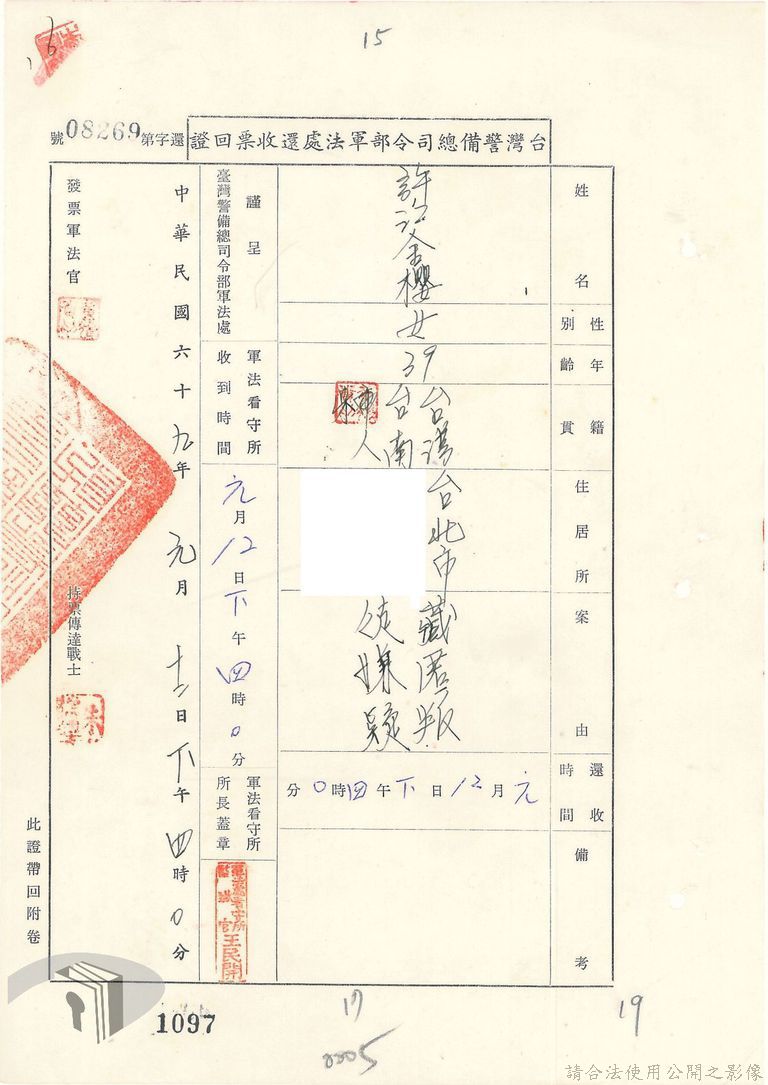 15
台灣警備總司令部軍法處還收票回證
還字第08269號
姓名
許江金櫻
性別
女
年齡
39
籍貫
台灣
台南
人
住居所
台北市
案由
藏匿叛
徒嫌疑
還收時間
元月12日下午四時0分
備考
謹呈
臺灣警備總司令部軍法處
軍法看守所
收到時間
元月12日下午四時0分
軍法看守所
所長蓋章
王民開
中華民國六十九年元月十二日下午四時0分
發票軍法官
持票傳達戰士
此證帶回附卷
1097
17
0005
19
請合法使用公開之影像